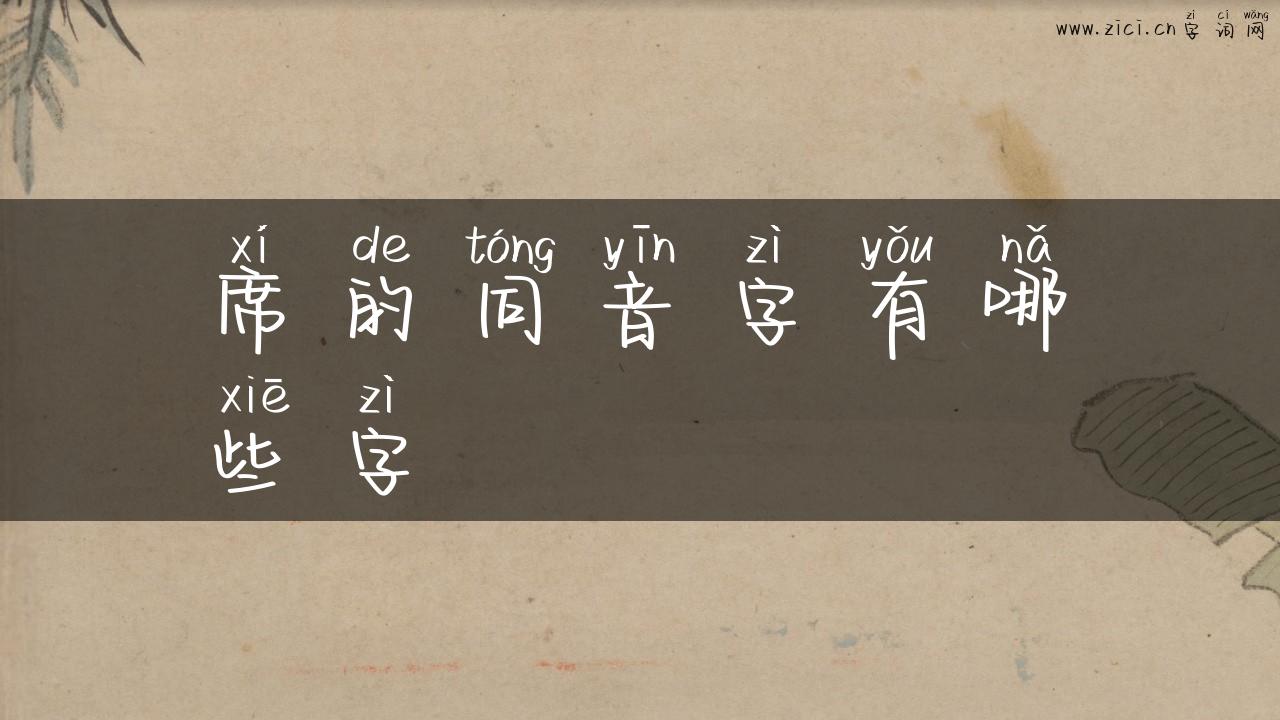 zì cí wǎng
www.zici.cn 字词网
xí de tóng yīn zì yǒu nǎ
席的同音字有哪
xiē zì
些字